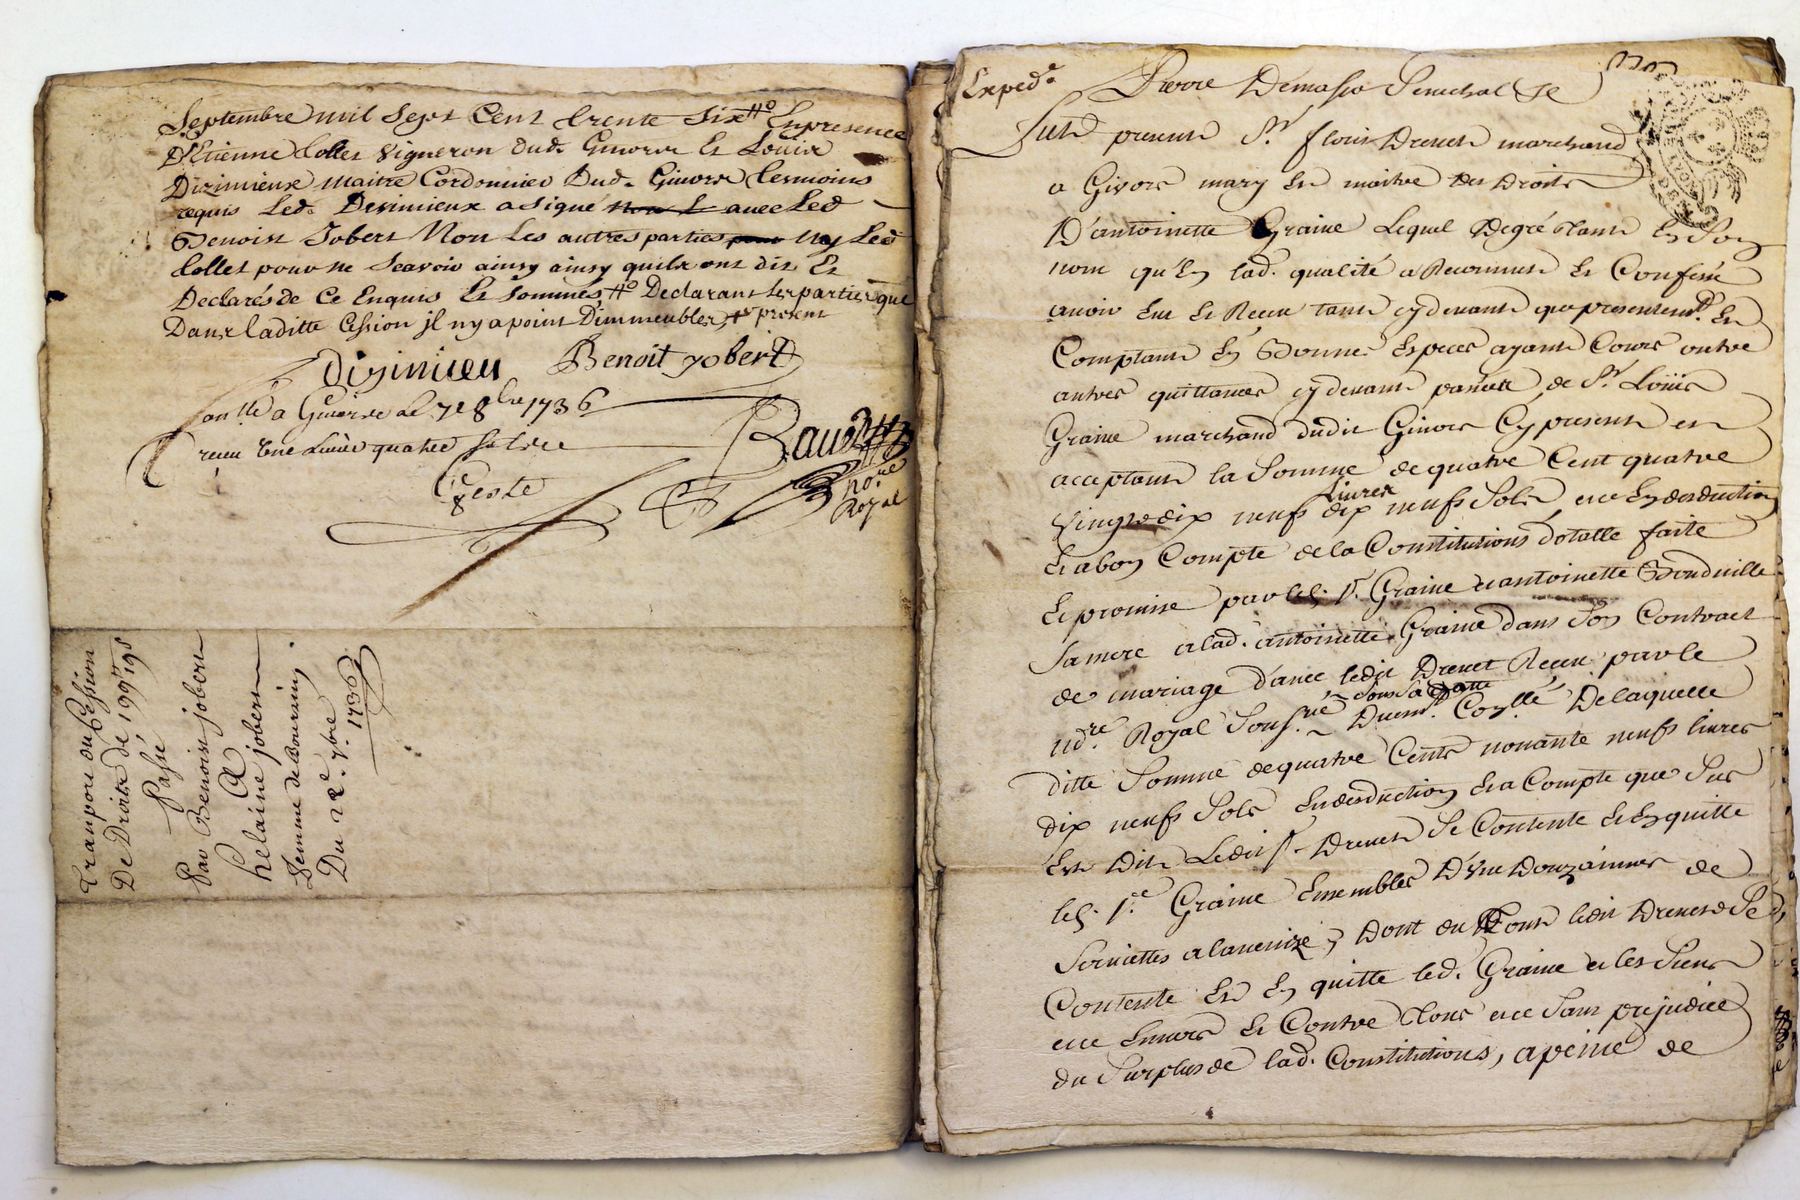 Septembre mil sept cent trente six #° En presence
D'Etienne Collet vigneron dud. Givors Et Louis
Dizimieux maitre Cordonnier Dud. Givors temoins
requis Led. Dizimieux a signé non L avec Led
Benoist Jobert Non Les autres parties pour ny Led
Collet pour ne Scavoir ainsy ainsy quils ont dit Et
Declarés de Ce Enquis Et Sommés, #° Declarant Les parties que
Dans laditte Cession jl ny a point Dimmeubles present
diziniieu Benoit yobert
a Givors Le 7e 8bre 1736
receu une Livre quatre sols
Ceste
no.re
Royal
Transport ou Cession
De Droits de 199# 19s
Passé
Par Benoist jobert
A
helaine jobert
femme de Bourrin
Du 22e. 7bre.
1736
Exped.e
Pierre Demasso Senechal &e
Fut present Sr. fleury Drevet marchand
a Givors mary Et maitre des Droits
D'antoinette Graine Lequel De gré tant En Son
nom qu'En lad. qualité a Reconnu Et Confessé
avoir Eu Et Receu tant cy devant que presentemt. En
Comptant En Bonnes Especes ayant Cours outre
autres quittances cy devant passées de Sr. Loüis
Graine marchand dudit Givors Cy present et
acceptant la Somme de quatre Cent quatre
Vingt dix neufs livres dix neufs Sols, et ce En deduction
Et a bon Compte de la Constitutions dotalle faite
Et promise par les. Sr. Graine et antoinette Bonduille
Sa mere a lad. antoinette Graine dans Son Contract
de mariage d'avec ledit Drevet Receu par le
no.re Royal Sous.né Sous Sa datte Duemt. Con.llé Delaquelle
ditte Somme de quatre Cents nonante neufs livres
dix neufs Sols En deduction Et a Compte que Sus
Est Dit Ledit Sr. Drevet Se Contente Et En quitte
les. Sr. Graine Ensembles D'Une Douzainnes de
Serviettes a la venize, Dont du Tout ledit Drevet Se
Contente Et En quitte led. Graine et les Siens
et ce Envers Et Contre Tous et ce Sans prejudice
du Surplus de lad. Constitutions, a peine de